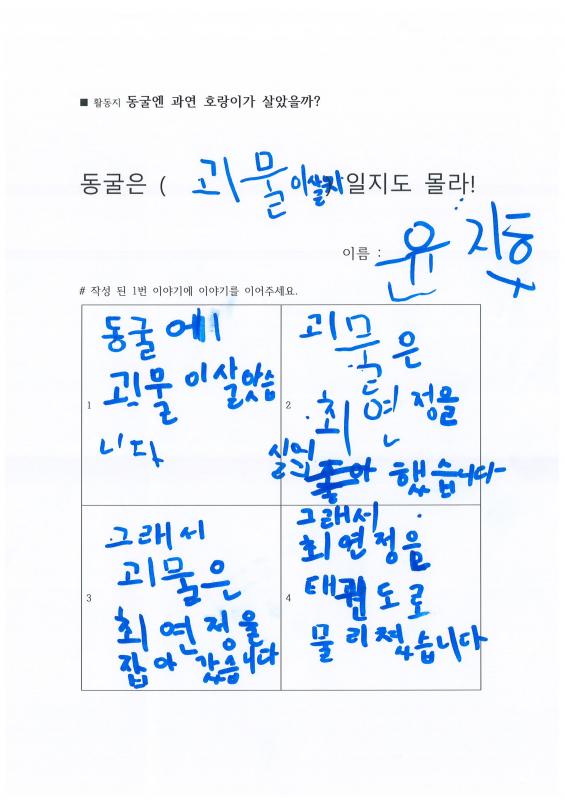 ■ 활동지 동굴엔 과연 호랑이가 살았을까?
동굴은 ( 괴물이살지 일지도 몰라!
이름 : 윤지동
# 작성 된 1번 이야기에 이야기를 이어주세요.
1
동굴에
괴물이살았습
니다
2
괴물은
최연정을
실어
했습니다
3
그래서
괴물은
최연정을
잡아갔습니다
4
그래서
최연정을
태퀀도로
물리쳤습니다